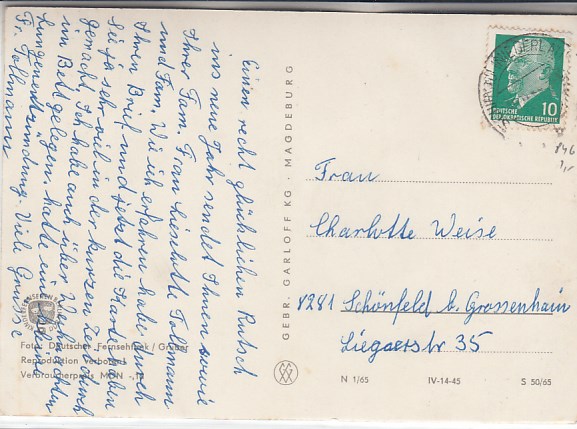 Einen recht glücklichen Rutsch
ins neue Jahr sendet Ihnen sowie
Ihrer Fam. Frau Lieselotte Tollmann
und Fam. Wie ich erfahren habe durch
Ihren Brief und jetzt die Karte haben
Sie ja sehr viel in der kurzen Zeit durch
gemacht. Ich habe auch über Weihnachten
im Bett gelegen hatte eine kleine
Lungenentzündung. Viele Grüsse
Fr. Tollmann
Foto: Deutscher Fernsehfunk /
Reproduktion Verboten
Verbraucherpreis MDN -,
GEBR. GARLOFF KG · MAGDEBURG
10
DEUTSCHE
DEMOKRATISCHE REPUBLIK
846
Frau
Charlotte Weise
8281 Schönfeld b. Grossenhain
Liegaerstr 35
N 1/65 IV-14-45 S 50/65